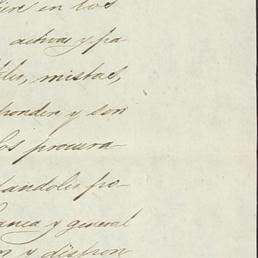 en los
activas y pa
mistas,
ponden y son
los procura
tandoles po-
anca y general
y dispon